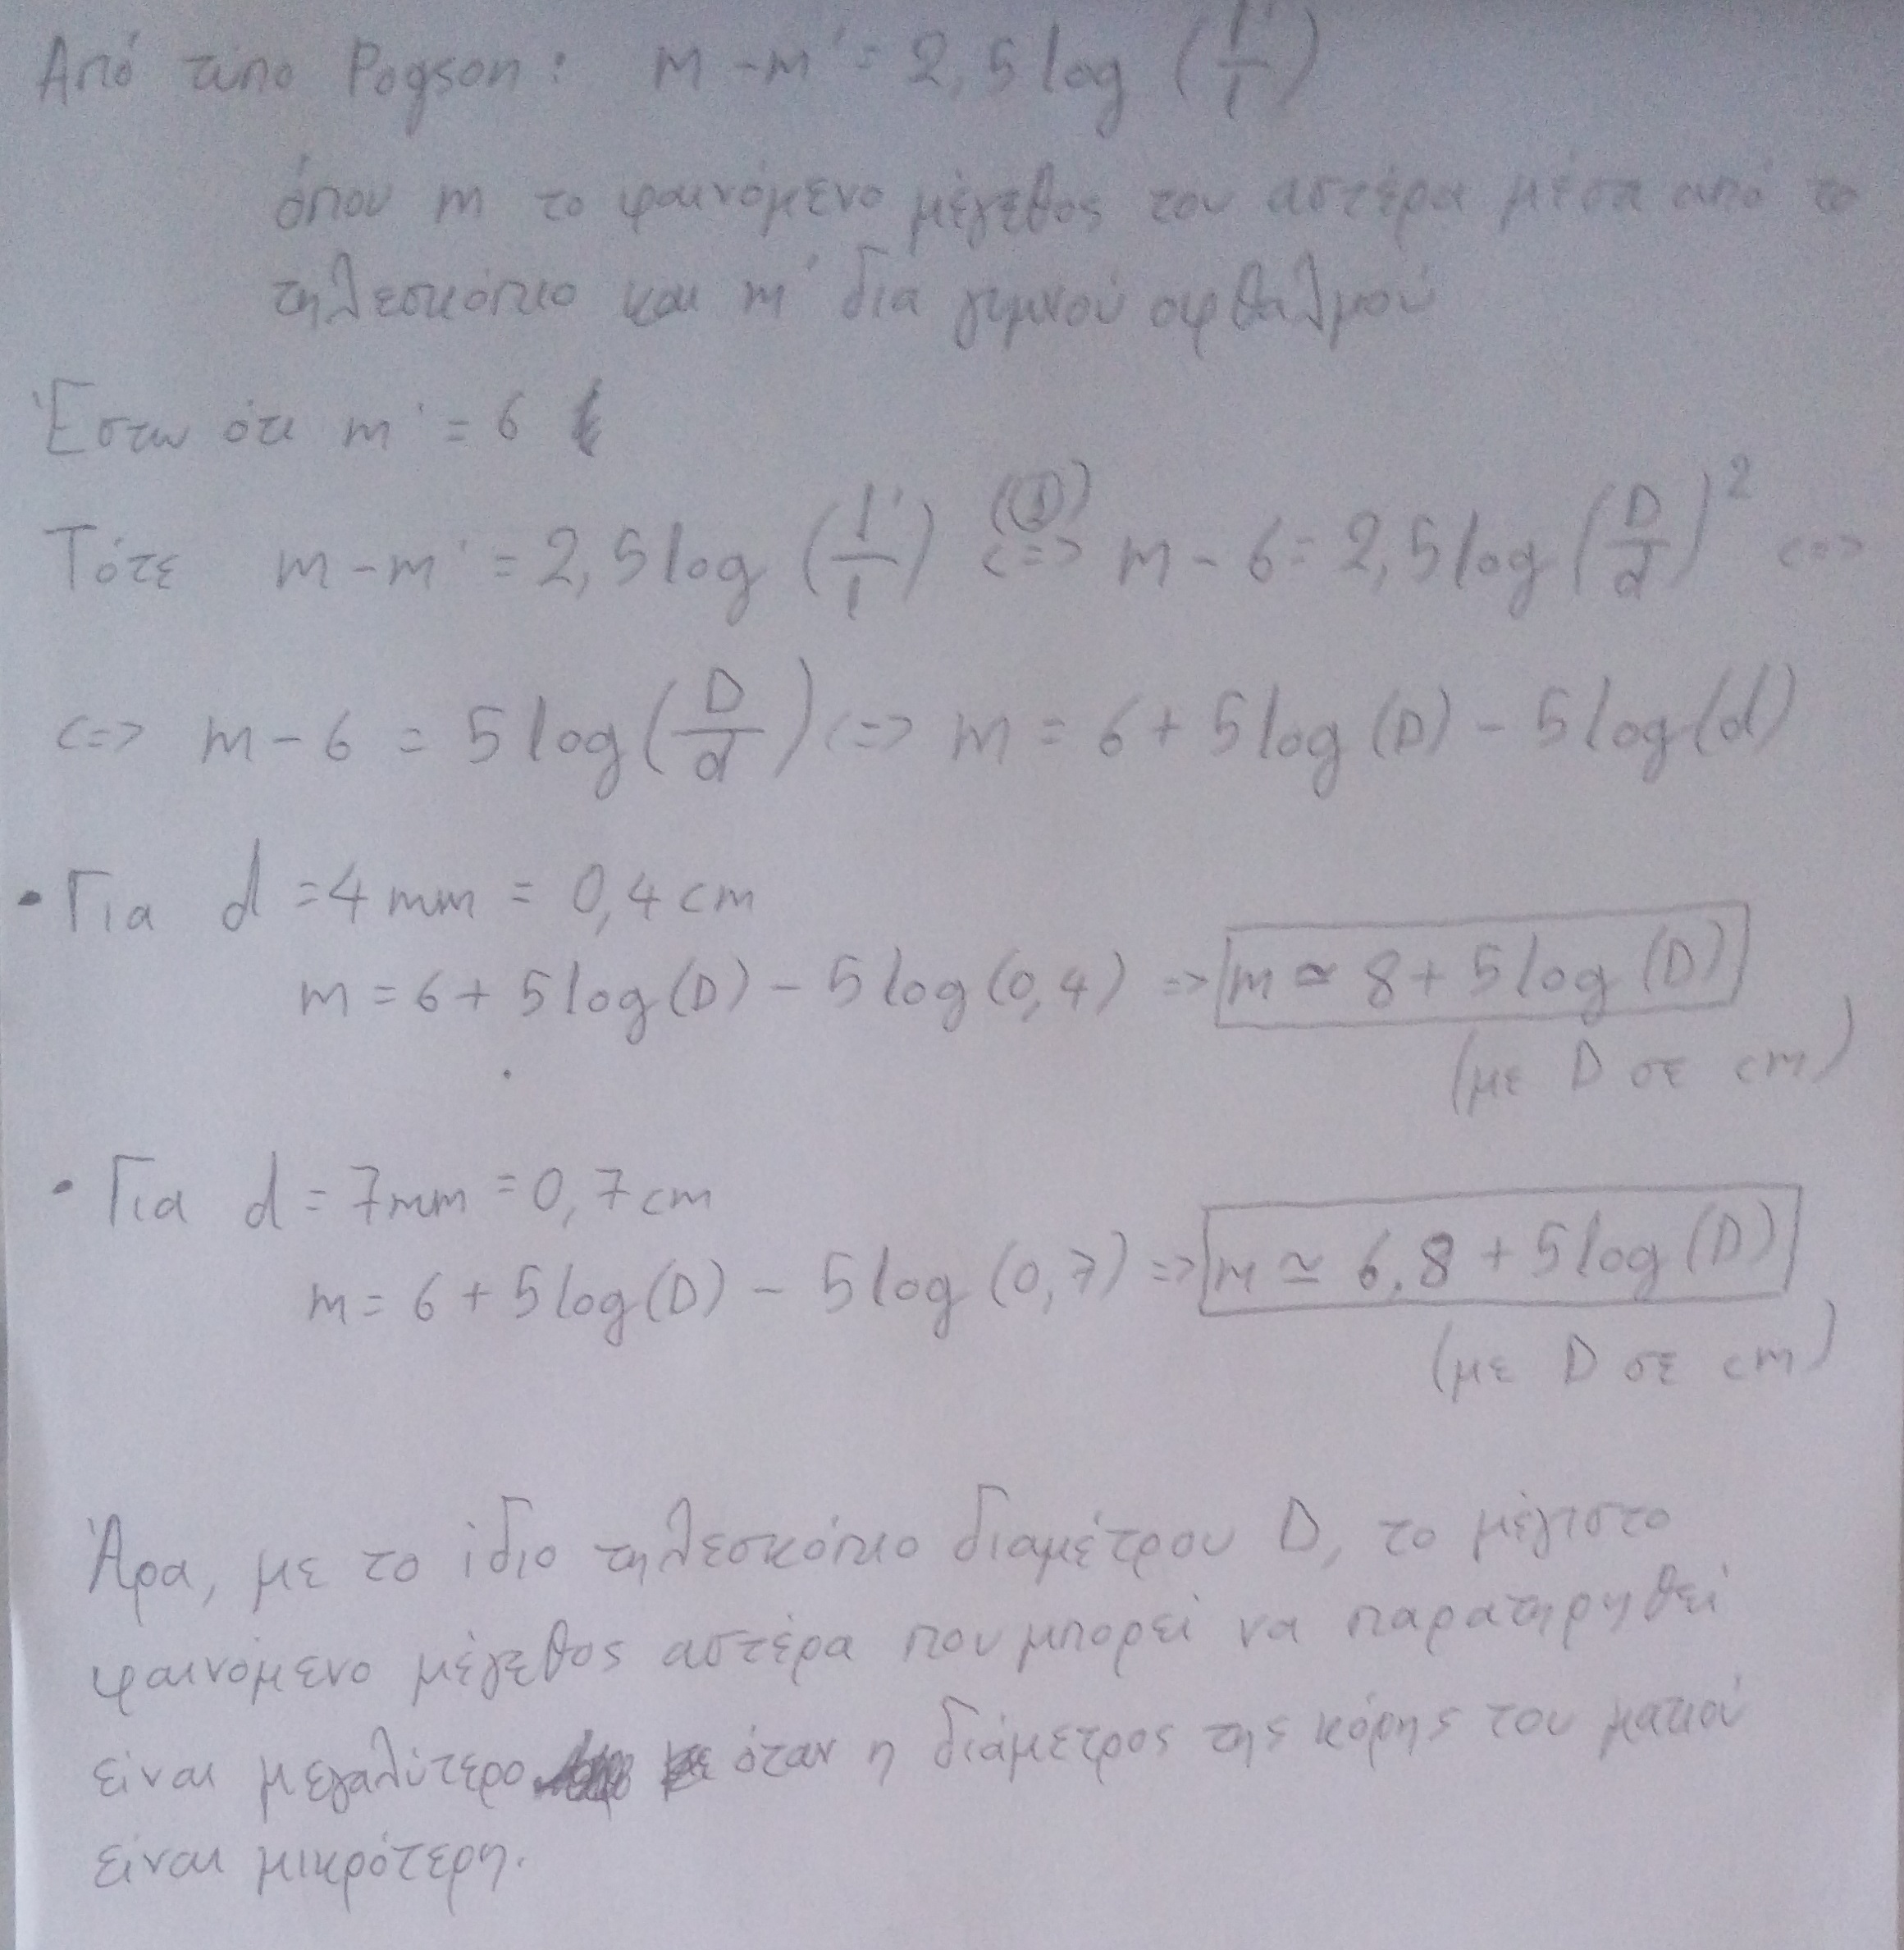 Από τύπο Pogson: m - m' = 2,5 log (l'/l)
όπου m το φαινόμενο μέγεθος του αστέρα μέσα από το
τηλεσκόπιο και m' δια γυμνού οφθαλμού
Έστω ότι m' = 6
Τότε m - m' = 2,5 log (l'/l) <=> m - 6 = 2,5 log (D/d)² <=>
<=> m - 6 = 5 log (D/d) <=> m = 6 + 5 log (D) - 5 log (d)
• Για d = 4 mm = 0,4 cm
m = 6 + 5 log (D) - 5 log (0,4) => m ≃ 8 + 5 log (D)
(με D σε cm)
• Για d = 7 mm = 0,7 cm
m = 6 + 5 log (D) - 5 log (0,7) => m ≃ 6,8 + 5 log (D)
(με D σε cm)
Άρα, με το ίδιο τηλεσκόπιο διαμέτρου D, το μέγιστο
φαινόμενο μέγεθος αστέρα που μπορεί να παρατηρηθεί
είναι μεγαλύτερο όταν η διάμετρος της κόρης του ματιού
είναι μικρότερη.